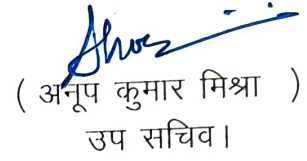 ( अनूप कुमार मिश्रा )
उप सचिव।